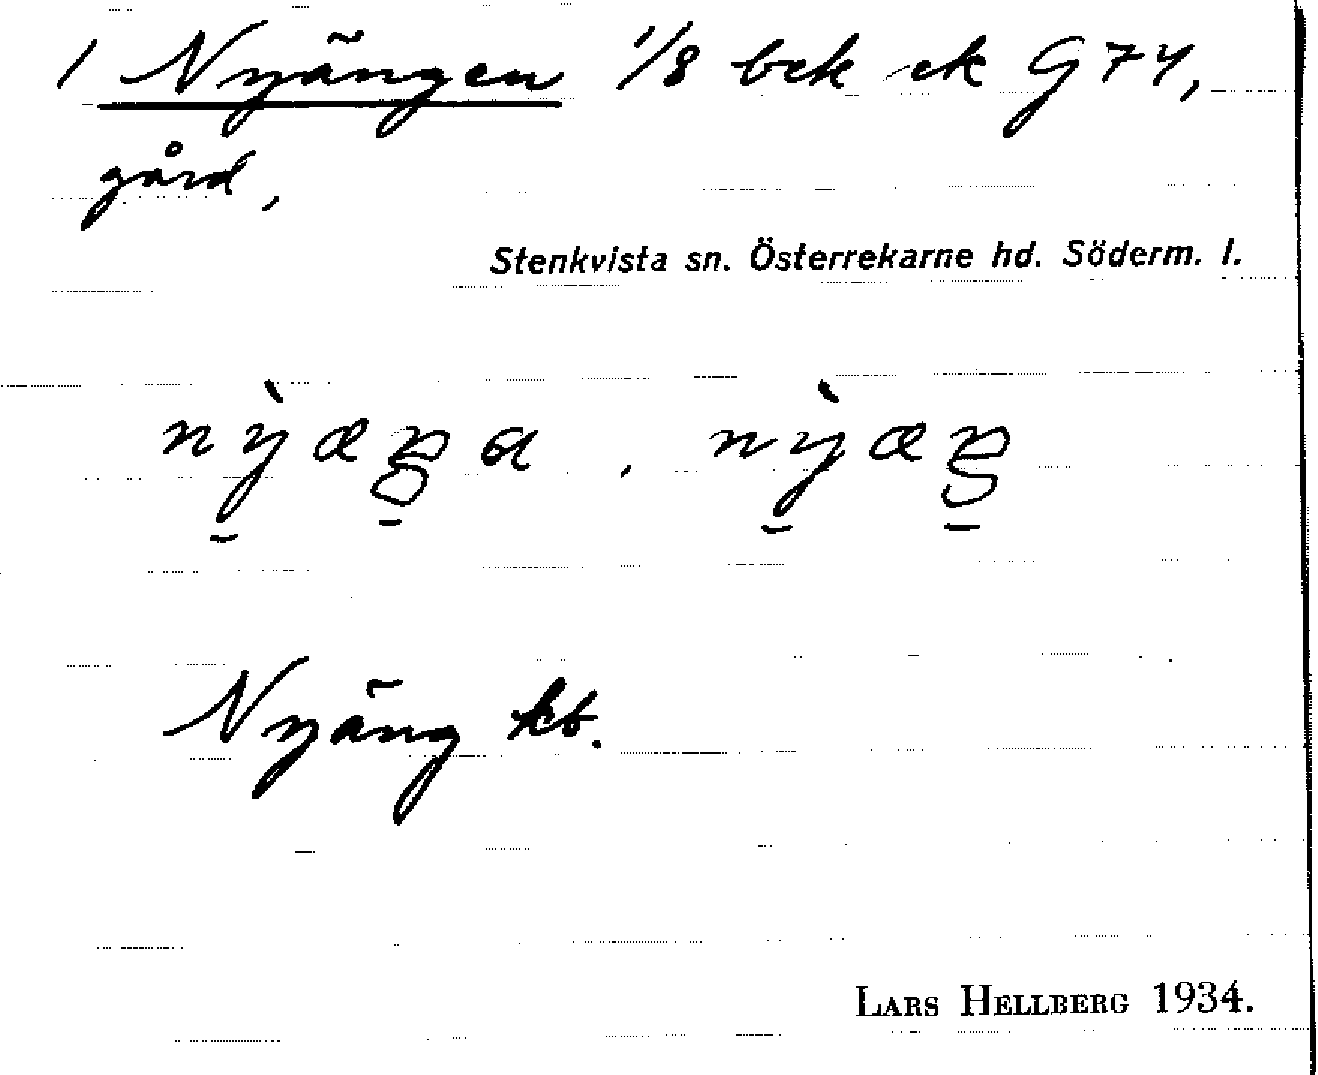 1 Nyängen 1/8 bek ek G 74,
gård,
Stenkvista sn. Österrekarne hd. Söderm. l.
Nyäng kb.
LARS HELLBERG 1934.